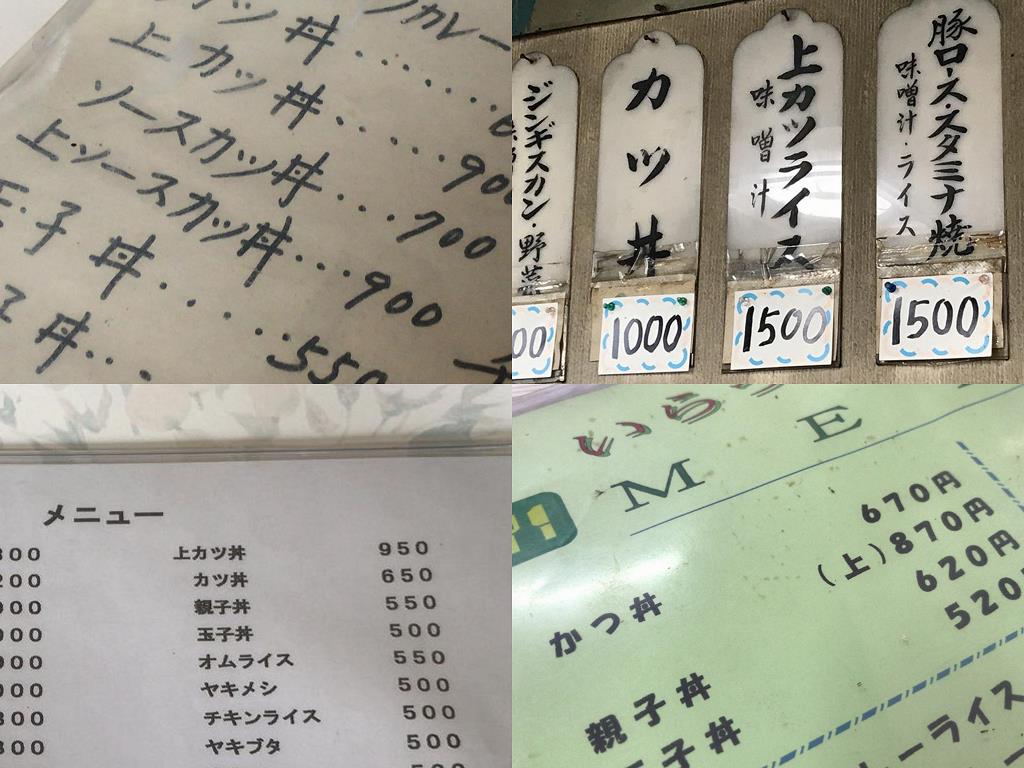 カレー
丼……
上カツ丼……900
ソースカツ丼…700
上ソースカツ丼…900
玉子丼……550
丼…
ジンギスカン・野菜
00
カツ丼
1000
上カツライス
味噌汁
1500
豚ロース・スタミナ焼
味噌汁・ライス
1500
メニュー
上カツ丼 950
カツ丼 650
親子丼 550
玉子丼 500
オムライス 550
ヤキメシ 500
チキンライス 500
ヤキブタ 500
いら
ME
かつ丼 670円
(上)870円
親子丼 620円
子丼 520
ーライス